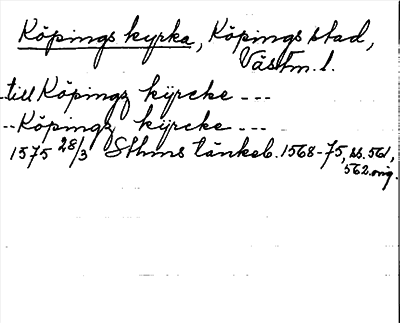 Köpings kyrka, Köpings stad,
Västm. l.
--till Köpingz kijrcke ---
--Köpingz kijrcke ---
1575 28/3 Sthms tänkeb. 1568-75, ss. 561,
562. orig.